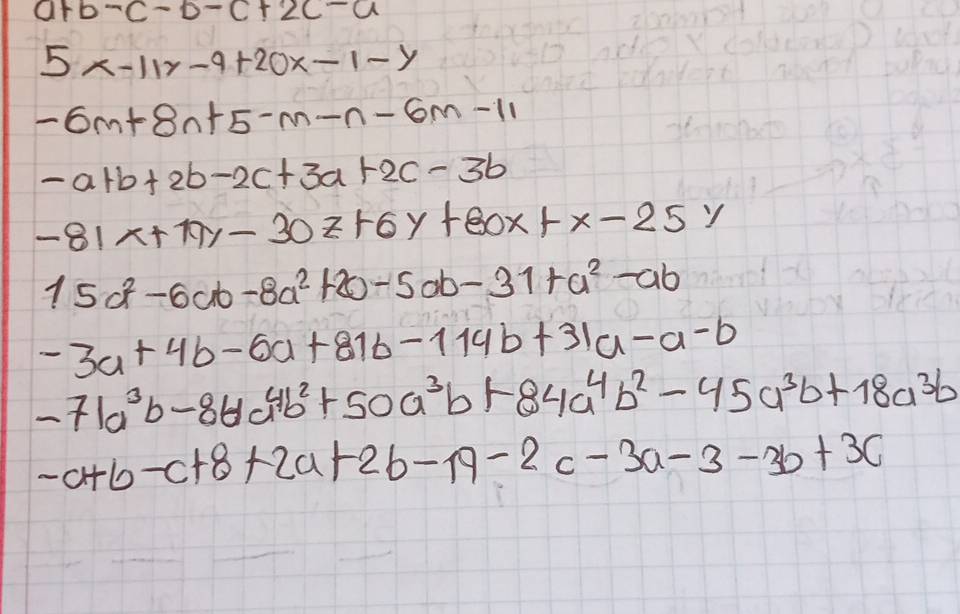 a+b-c-b-c+2c-a
5x-11y-9+20x-1-y
-6m+8n+5-m-n-6m-11
-a+b+2b-2c+3a+2c-3b
-81x+19y-30z+6y+80x+x-25y
15a²-6ab-8a²+20-5ab-31+a²-ab
-3a+4b-6a+81b-114b+31a-a-b
-71a³b-84a⁴b²+50a³b+84a⁴b²-45a³b+18a³b
-a+b-c+8+2a+2b-19-2c-3a-3-3b+3c